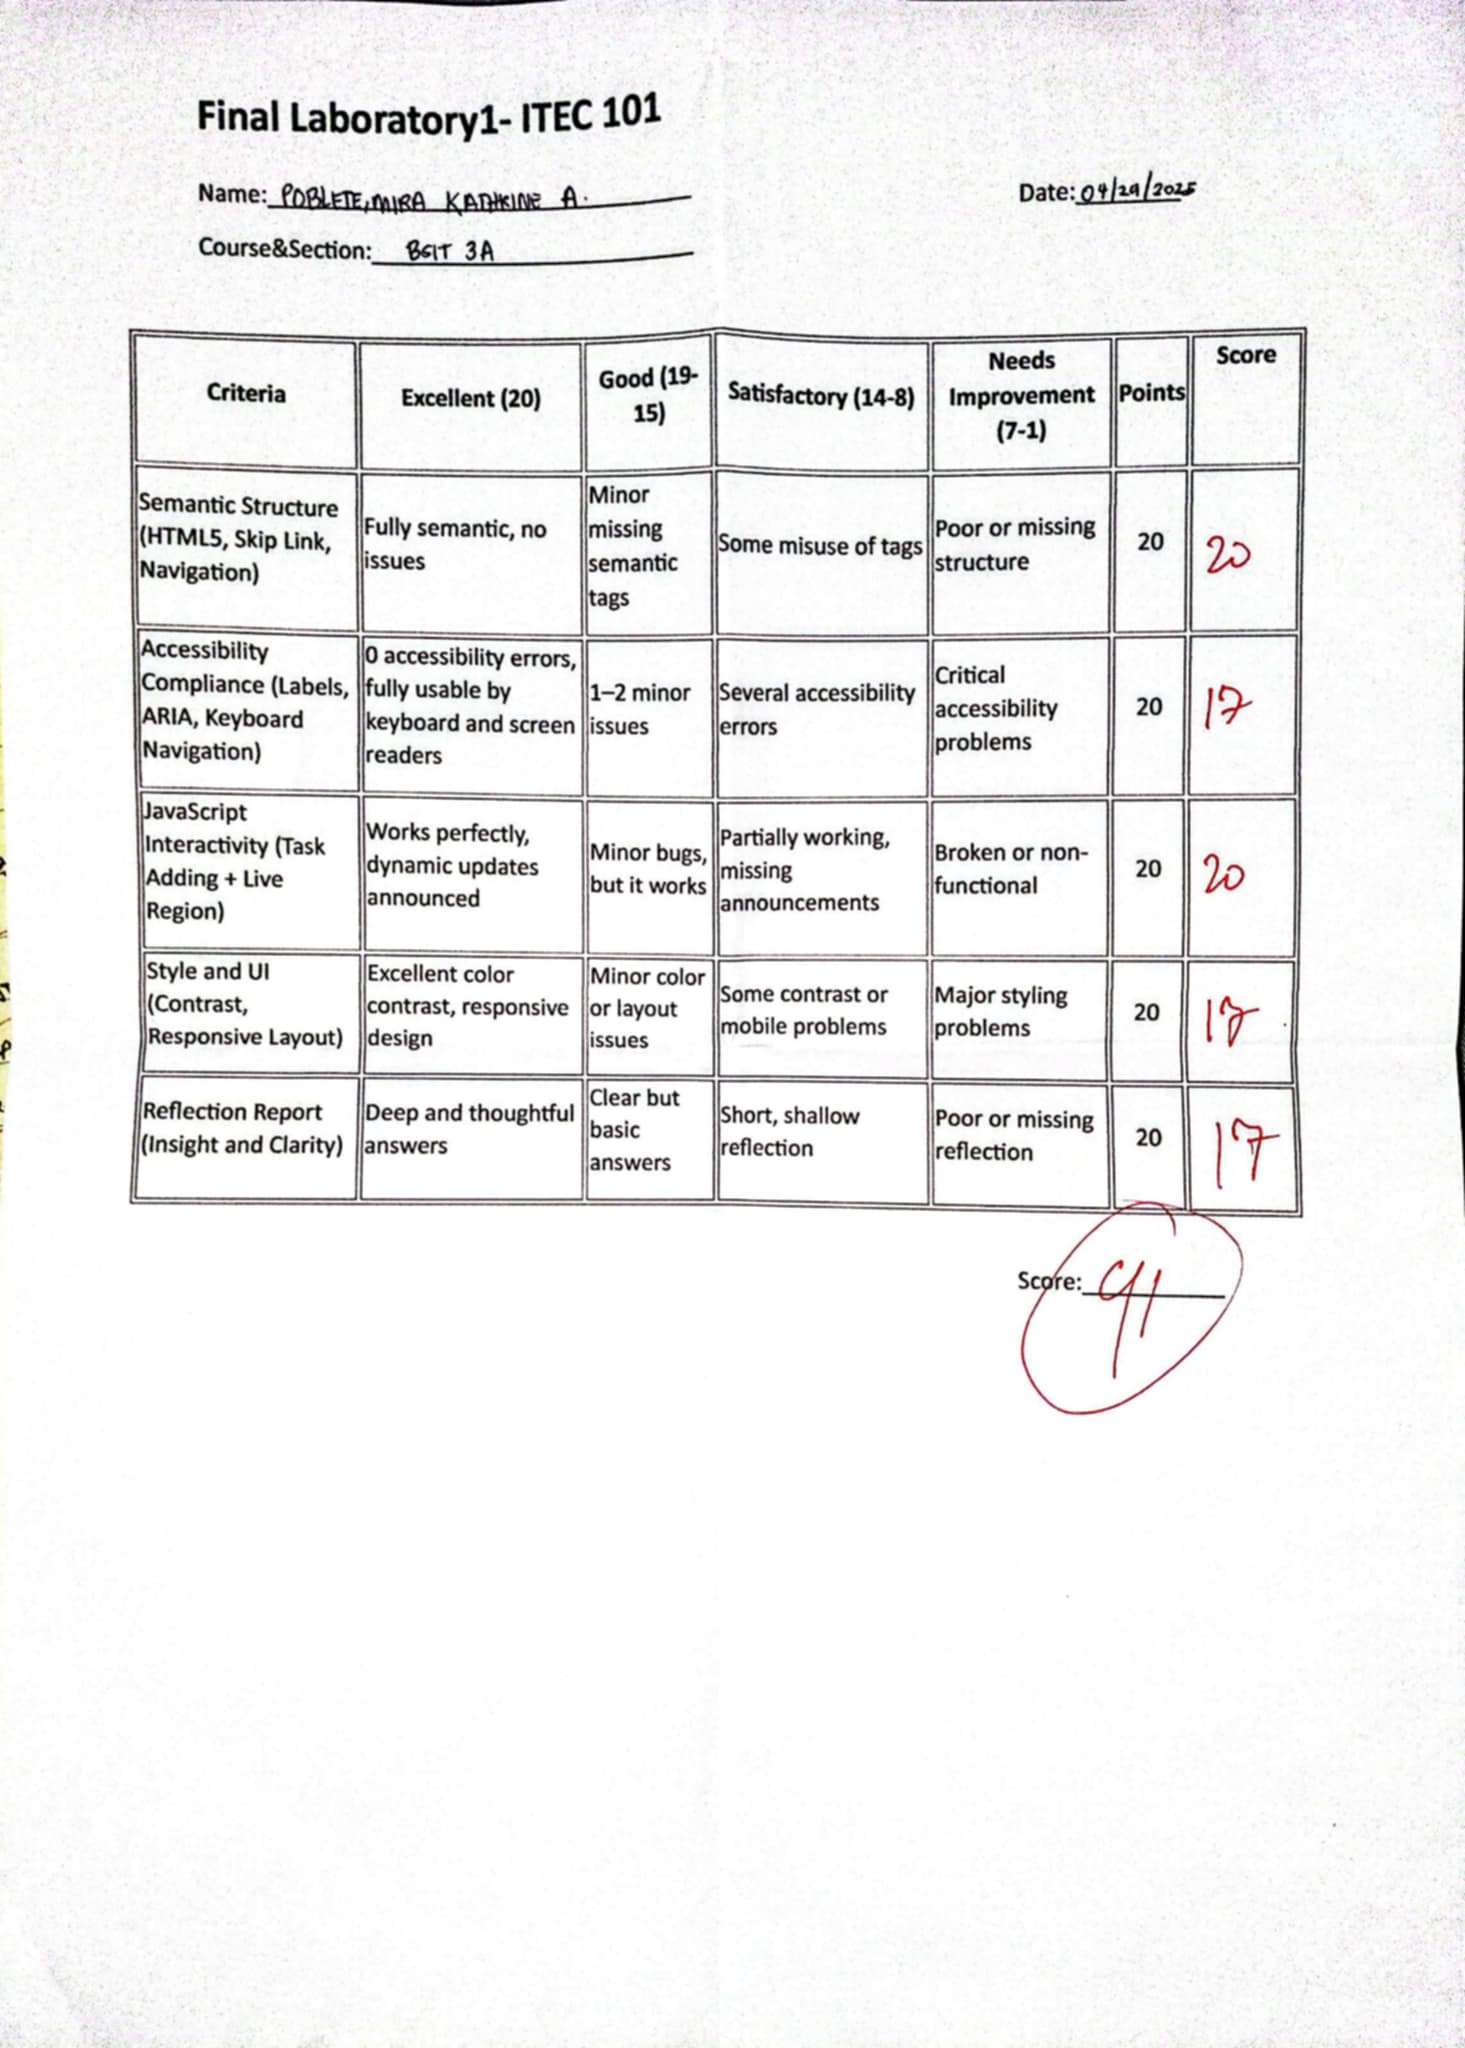 Final Laboratory1- ITEC 101
Name: POBLETE, MIRA KATHRINE A.
Date: 04/29/2025
Course&Section: BSIT 3A
Criteria
Excellent (20)
Good (19-
15)
Satisfactory (14-8)
Needs
Improvement
(7-1)
Points
Score
Semantic Structure
(HTML5, Skip Link,
Navigation)
Fully semantic, no
issues
Minor
missing
semantic
tags
Some misuse of tags
Poor or missing
structure
20
20
Accessibility
Compliance (Labels,
ARIA, Keyboard
Navigation)
0 accessibility errors,
fully usable by
keyboard and screen
readers
1–2 minor
issues
Several accessibility
errors
Critical
accessibility
problems
20
17
JavaScript
Interactivity (Task
Adding + Live
Region)
Works perfectly,
dynamic updates
announced
Minor bugs,
but it works
Partially working,
missing
announcements
Broken or non-
functional
20
20
Style and UI
(Contrast,
Responsive Layout)
Excellent color
contrast, responsive
design
Minor color
or layout
issues
Some contrast or
mobile problems
Major styling
problems
20
17
Reflection Report
(Insight and Clarity)
Deep and thoughtful
answers
Clear but
basic
answers
Short, shallow
reflection
Poor or missing
reflection
20
17
Score: 91